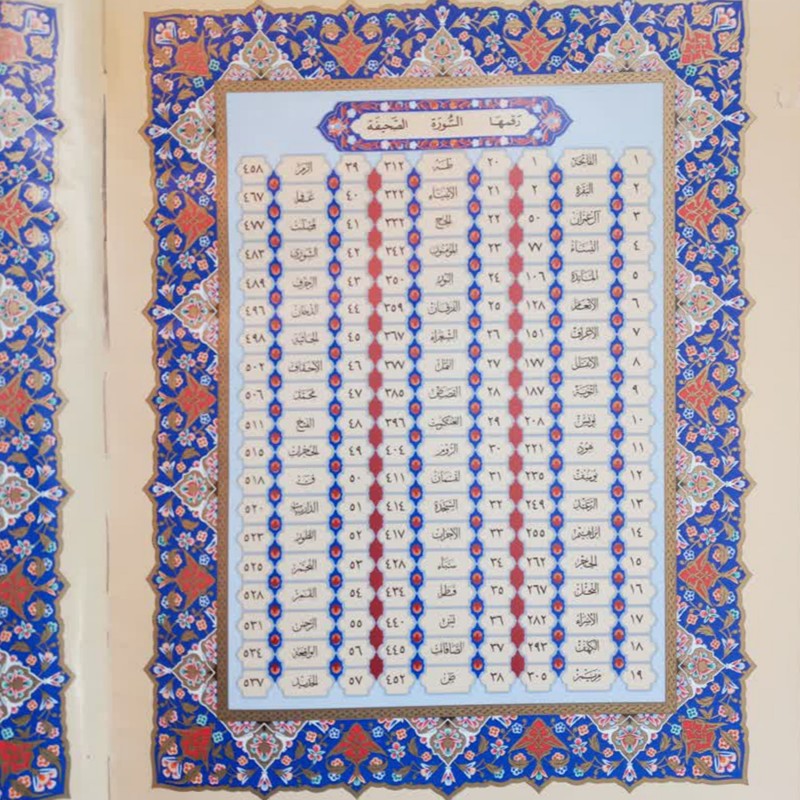 رقمها السورة الصحيفة
١ الفاتحة ١ ٢٠ طه ٣١٢ ٣٩ الزمر ٤٥٨
٢ البقرة ٢ ٢١ الأنبياء ٣٢٢ ٤٠ غافر ٤٦٧
٣ آل عمران ٥٠ ٢٢ الحج ٣٣٢ ٤١ فصلت ٤٧٧
٤ النساء ٧٧ ٢٣ المؤمنون ٣٤٢ ٤٢ الشورى ٤٨٣
٥ المائدة ١٠٦ ٢٤ النور ٣٥٠ ٤٣ الزخرف ٤٨٩
٦ الأنعام ١٢٨ ٢٥ الفرقان ٣٥٩ ٤٤ الدخان ٤٩٦
٧ الأعراف ١٥١ ٢٦ الشعراء ٣٦٧ ٤٥ الجاثية ٤٩٨
٨ الأنفال ١٧٧ ٢٧ النمل ٣٧٧ ٤٦ الأحقاف ٥٠٢
٩ التوبة ١٨٧ ٢٨ القصص ٣٨٥ ٤٧ محمد ٥٠٦
١٠ يونس ٢٠٨ ٢٩ العنكبوت ٣٩٦ ٤٨ الفتح ٥١١
١١ هود ٢٢١ ٣٠ الروم ٤٠٤ ٤٩ الحجرات ٥١٥
١٢ يوسف ٢٣٥ ٣١ لقمان ٤١١ ٥٠ ق ٥١٨
١٣ الرعد ٢٤٩ ٣٢ السجدة ٤١٤ ٥١ الذاريات ٥٢٠
١٤ إبراهيم ٢٥٥ ٣٣ الأحزاب ٤١٧ ٥٢ الطور ٥٢٣
١٥ الحجر ٢٦٢ ٣٤ سبأ ٤٢٨ ٥٣ النجم ٥٢٥
١٦ النحل ٢٦٧ ٣٥ فاطر ٤٣٤ ٥٤ القمر ٥٢٨
١٧ الإسراء ٢٨٢ ٣٦ يس ٤٤٠ ٥٥ الرحمن ٥٣١
١٨ الكهف ٢٩٣ ٣٧ الصافات ٤٤٥ ٥٦ الواقعة ٥٣٤
١٩ مريم ٣٠٥ ٣٨ ص ٤٥٢ ٥٧ الحديد ٥٣٧